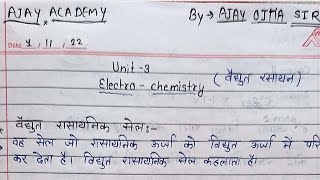 AJAY ACADEMY
By → AJAY OJHA SIR
Date 4, 11, 22
Unit-3
Electro-chemistry (वैधुत रसायन)
वैधुत रासायनिक सेल:-
वह सेल जो रासायनिक ऊर्जा को विधुत ऊर्जा में परि
कर देता है। विधुत रासायनिक सेल कहलाता है।